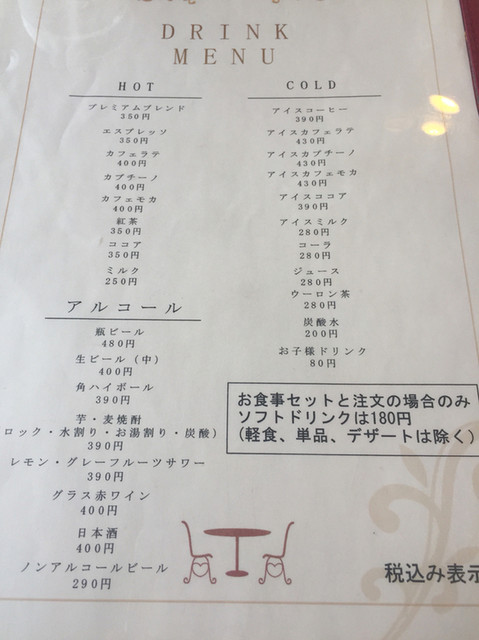 DRINK
MENU
HOT
プレミアムブレンド
350円
エスプレッソ
350円
カフェラテ
400円
カプチーノ
400円
カフェモカ
400円
紅茶
350円
ココア
350円
ミルク
250円
アルコール
瓶ビール
480円
生ビール（中）
400円
角ハイボール
390円
芋・麦焼酎
ロック・水割り・お湯割り・炭酸）
390円
レモン・グレーフルーツサワー
390円
グラス赤ワイン
400円
日本酒
400円
ノンアルコールビール
290円
COLD
アイスコーヒー
390円
アイスカフェラテ
430円
アイスカプチーノ
430円
アイスカフェモカ
430円
アイスココア
390円
アイスミルク
280円
コーラ
280円
ジュース
280円
ウーロン茶
280円
炭酸水
200円
お子様ドリンク
80円
お食事セットと注文の場合のみ
ソフトドリンクは180円
(軽食、単品、デザートは除く)
税込み表示